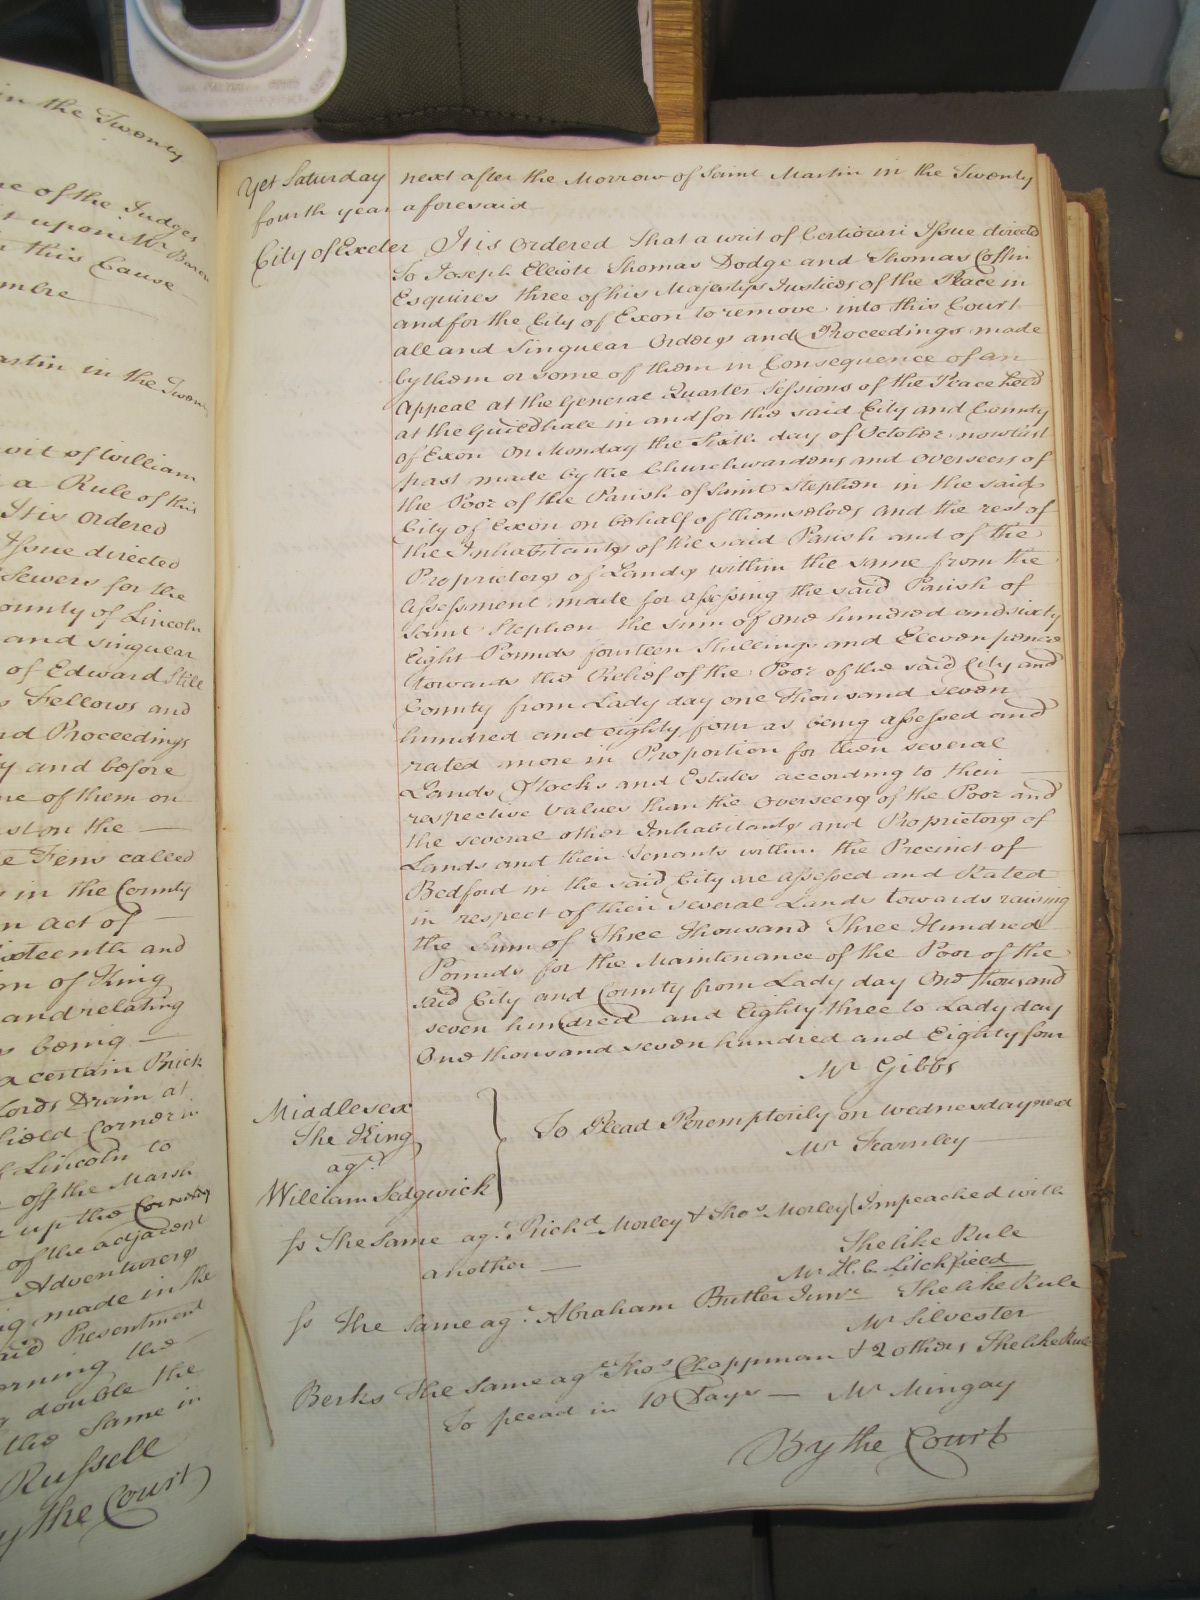 in the Twenty
ne of the Judges
t upon Mr Baron
n this Cause
mbre
artin in the Twen
vit of William
a Rule of this
It is Ordered
Issue directed
Sewers for the
ounty of Lincoln
and singular
of Edward Still
s Fellows and
nd Proceedings
y and before
ne of them on
st on the
e Fens called
s in the County
n act of
ixteenth and
on of King
and relating
s being
a certain Brick
Lords Drain at
field Corner in
f Lincoln to
off the Marsh
up the
of the adjacent
Adventurers
g made in the
aid Presentment
erning the
g double the
the Same in
Russell
y the Court
Yet Saturday next after the Morrow of Saint Martin in the Twenty
fourth year aforesaid
City of Exeter It is Ordered that a writ of Certiorari Issue directed
To Joseph Elliott Thomas Dodge and Thomas Coffin
Esquires three of his Majestys Justices of the Peace in
and for the City of Exon to remove into this Court
all and Singular Orders and Proceedings made
by them or some of them in Consequence of an
Appeal at the General Quarter Sessions of the Peace held
at the Guildhall in and for the said City and County
of Exon on Monday the Sixth day of October now last
past made by the Churchwardens and Overseers of
the Poor of the Parish of Saint Stephen in the said
City of Exon on behalf of themselves and the rest of
the Inhabitants of the said Parish and of the
Proprietors of Lands within the same from the
assessment made for assessing the said Parish of
Saint Stephen the sum of one hundred and sixty
Eight Pounds fourteen Shillings and Eleven pence
towards the Relief of the Poor of the said City and
County from Lady day one thousand seven
hundred and eighty four as being assessed and
rated more in Proportion for their several
Lands Stocks and Estates according to their
respective Values than the Overseers of the Poor and
the several other Inhabitants and Proprietors of
Lands and their Tenants within the Precinct of
Bedford in the said City are assessed and Rated
in respect of their several Lands towards raising
the Sum of Three thousand Three Hundred
Pounds for the Maintenance of the Poor of the
said City and County from Lady day One thousand
seven hundred and Eighty three to Lady day
One thousand seven hundred and Eighty four
Mr Gibbs
Middlesex
The King
agt
William Sedgwick
To Plead Peremptorily on Wednesday next
Mr Fearnley
ss The Same agt Richd Morley & Thos Morley (Impeached with
another
The like Rule
Mr H. C. Litchfield
ss The Same agt Abraham Butler Junr The like Rule
Mr Silvester
Berks The Same agt Thos Chappman & 2 others The like Rule
To plead in 10 Days Mr Mingay
By the Court